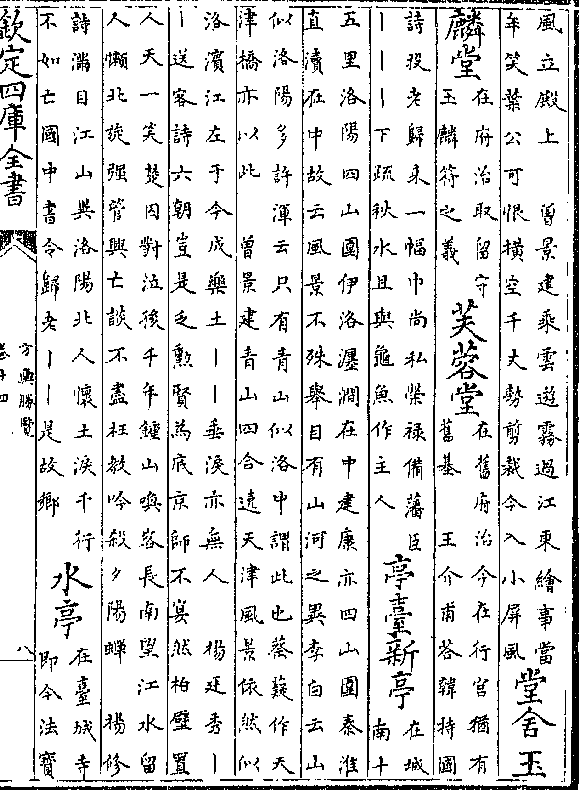 風立殿上　曾景建乘雲遊霧過江東繪事當
年笑葉公可恨横空千丈勢剪裁今入小屏風
堂舍玉
麟堂
在府治取留守
玉麟符之義
芙蓉堂
在舊府治今在行宮猶有
舊基　王介甫答韓持國
詩投老歸来一幅巾尚私榮禄備藩臣
｜｜｜下疏秋水且與龜魚作主人
亭臺新亭
在城
南十
五里洛陽四山圍伊洛瀍澗在中建康亦四山圍秦淮
直瀆在中故云風景不殊舉目有山河之異李白云山
似洛陽多許渾云只有青山似洛中謂此也蔡薿作天
津橋亦以此　曾景建青山四合遶天津風景依然似
洛濱江左于今成樂土｜｜垂淚亦無人　楊廷秀｜
｜送客詩六朝豈是乏勲賢為底京師不宴然柏壁置
人天一笑楚囚對泣後千年鍾山喚客長南望江水留
人懶北旋强管興亡談不盡枉教吟殺夕陽蟬　楊修
詩滿目江山與洛陽北人懷土淚千行
不如亡國中書令歸老｜｜是故鄉
水亭
在臺城寺
即今法寶
欽定四庫全書
方輿勝覽
卷十四
八